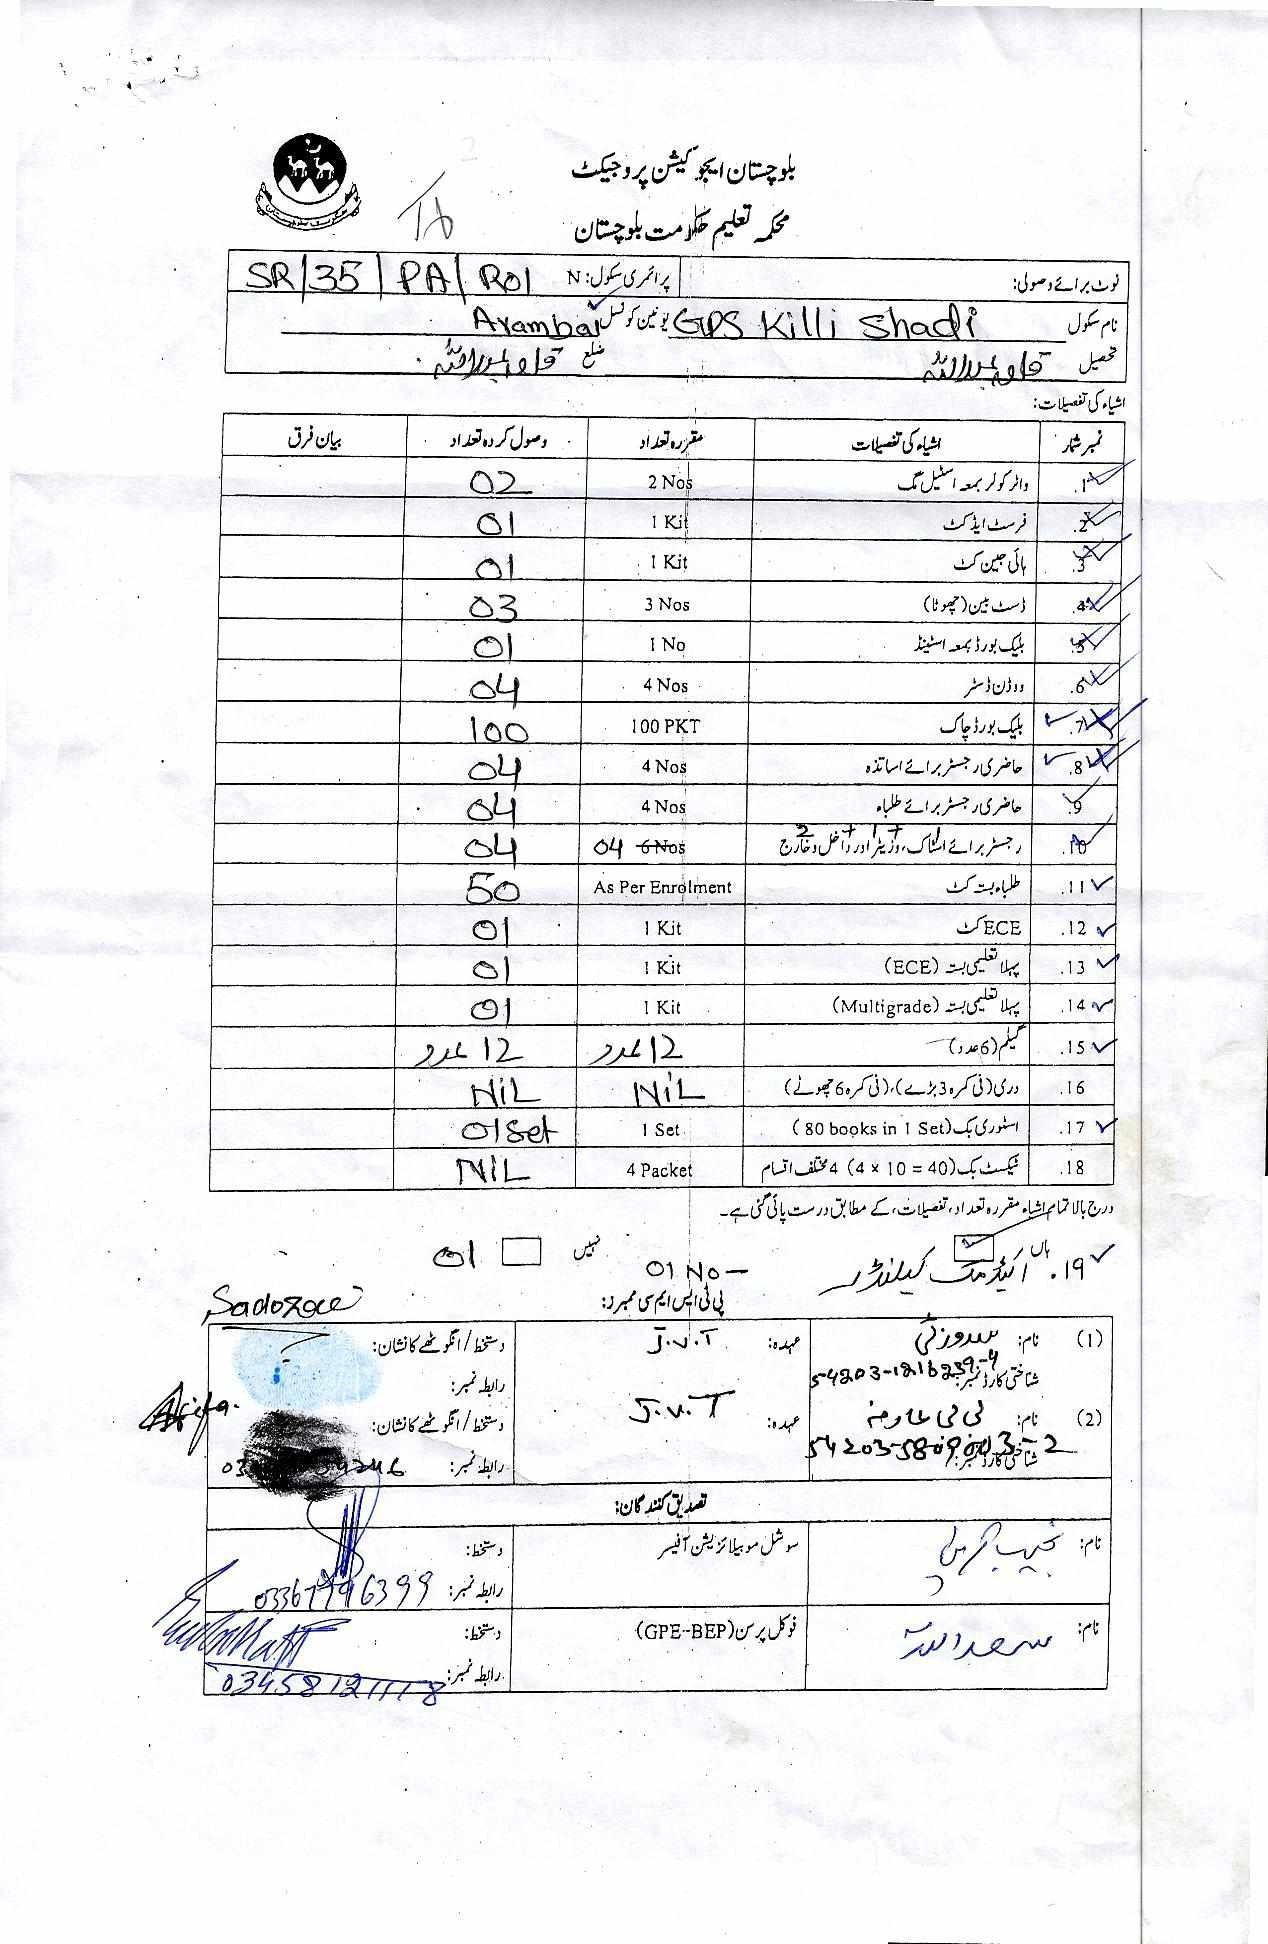 بلوچستان ایجوکیشن پروجیکٹ
محکمہ تعلیم حکومت بلوچستان
نوٹ برائے وصولی: پرائمری سکول: N SR/35/PA/R01
نام سکول GPS Killi Shadi یونین کونسل Arambai
تحصیل قلعہ عبداللہ ضلع قلعہ عبداللہ
اشیاء کی تفصیلات:
نمبر شمار اشیاء کی تفصیلات مقررہ تعداد وصول کردہ تعداد بیان فرق
.1 واٹر کولر بمعہ اسٹیل مگ 2 Nos 02
.2 فرسٹ ایڈ کٹ 1 Kit 01
.3 ہائی جین کٹ 1 Kit 01
.4 ڈسٹ بین (چھوٹا) 3 Nos 03
.5 بلیک بورڈ بمعہ اسٹینڈ 1 No 01
.6 ووڈن ڈسٹر 4 Nos 04
.7 بلیک بورڈ چاک 100 PKT 100
.8 حاضری رجسٹر برائے اساتذہ 4 Nos 04
.9 حاضری رجسٹر برائے طلباء 4 Nos 04
2 + 1 + 1
.10 رجسٹر برائے اسٹاک، وزیٹر اور داخل و خارج 6 Nos 04 04
.11 طلباء بستہ کٹ As Per Enrolment 50
.12 ECE کٹ 1 Kit 01
.13 پہلا تعلیمی بستہ (ECE) 1 Kit 01
.14 پہلا تعلیمی بستہ (Multigrade) 1 Kit 01
.15 گلیم (6 عدد) 12 عدد 12 عدد
.16 دری (فی کمرہ 3 بڑے)، (فی کمرہ 6 چھوٹے) NIL NIL
.17 اسٹوری بک (80 books in 1 Set) 1 Set 01 Set
.18 ٹیکسٹ بک (4 × 10 = 40) 4 مختلف اقسام 4 Packet NIL
درج بالا تمام اشیاء مقررہ تعداد، تفصیلات، کے مطابق درست پائی گئی ہے۔
ہاں نہیں
19. اکیڈمک کیلنڈر 01 No 01
پی ٹی ایس ایم سی ممبرز:
Sadozae
(1) نام: سدوزئی عہدہ: J.V.T دستخط/انگوٹھے کا نشان:
شناختی کارڈ نمبر: 54203-1216239-9 رابطہ نمبر:
(2) نام: بی بی عارفہ عہدہ: J.V.T دستخط/انگوٹھے کا نشان: Arifa
شناختی کارڈ نمبر: رابطہ نمبر:
تصدیق کنندگان:
نام: سوشل موبیلائزیشن آفیسر دستخط:
رابطہ نمبر: 03367796399
نام: سعداللہ فوکل پرسن (GPE-BEP) دستخط:
رابطہ نمبر: